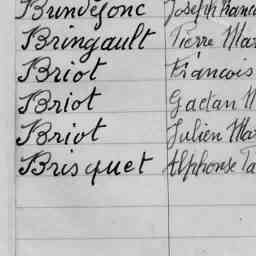 Brindejonc Joseph Franc
Bringault Pierre Mar
Briot François
Briot Gaëtan M
Briot Julien Mar
Brisquet Alphonse Ta